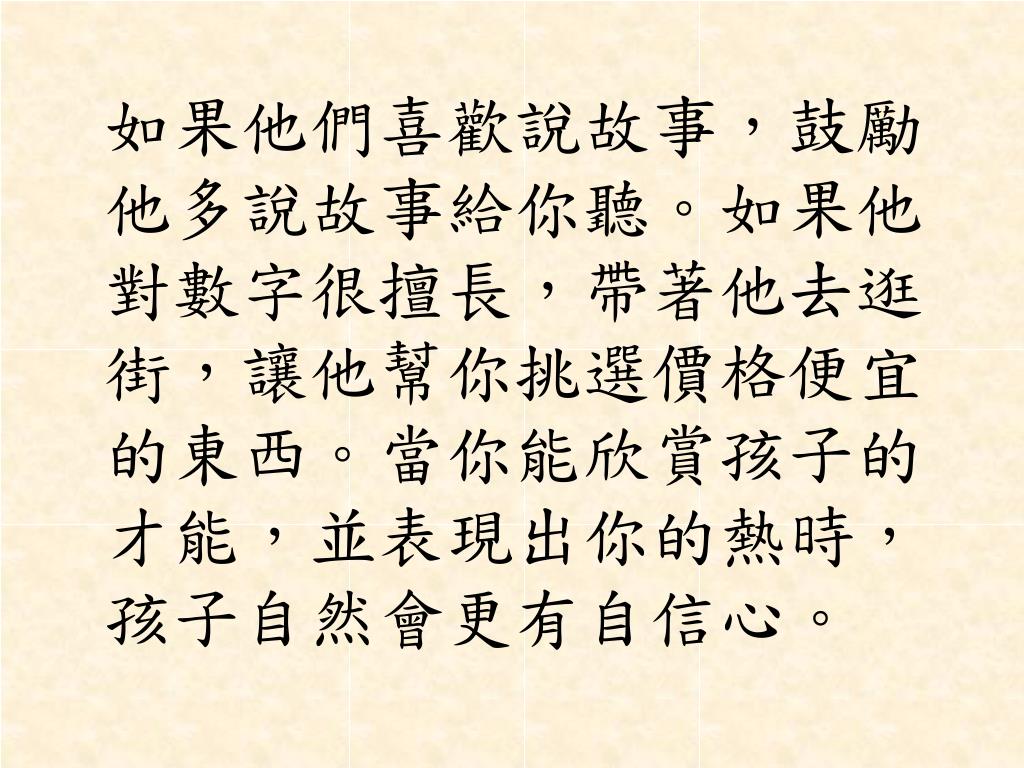 如果他們喜歡說故事，鼓勵
他多說故事給你聽。如果他
對數字很擅長，帶著他去逛
街，讓他幫你挑選價格便宜
的東西。當你能欣賞孩子的
才能，並表現出你的熱時，
孩子自然會更有自信心。